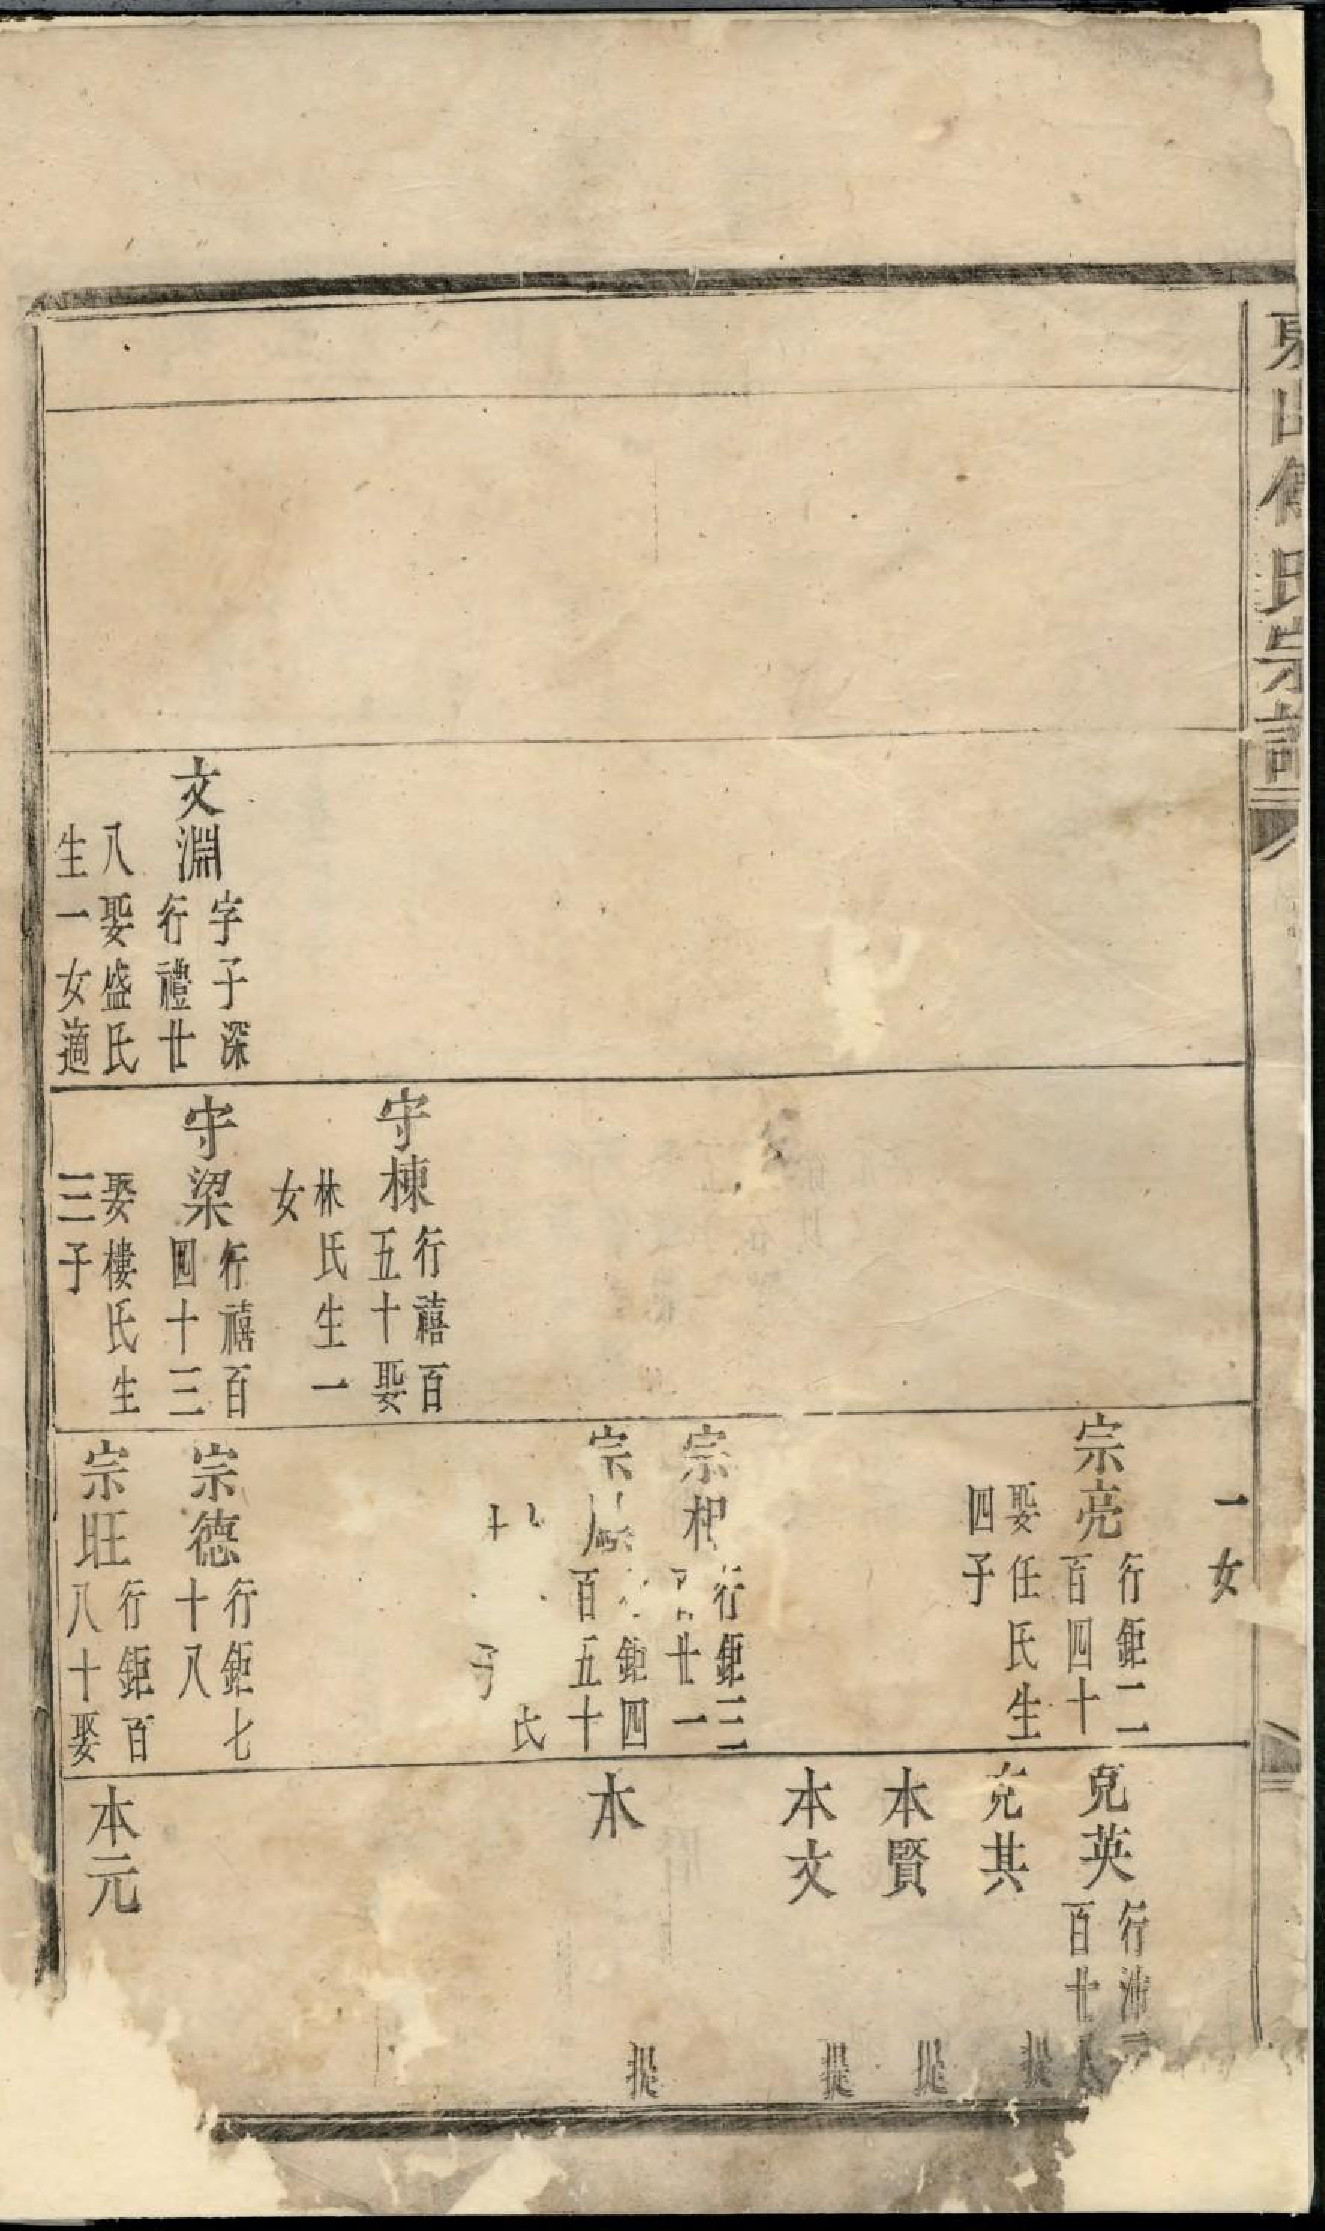 東山傅氏宗譜
文淵
字子深
行禮廿
八娶盛氏
生一女適
守棟
行禧百
五十娶
林氏生一
女
守梁
行禧百
四十三
娶樓氏生
三子
一女
宗亮
行鉅二
百四十
娶任氏生
四子
宗杞
行鉅三
廿一
宗
鉅四
百五十
氏
子
宗德
行鉅七
十八
宗旺
行鉅百
八十娶
克英
行沛
百廿
克其
提
本賢
提
本文
提
本
提
本元